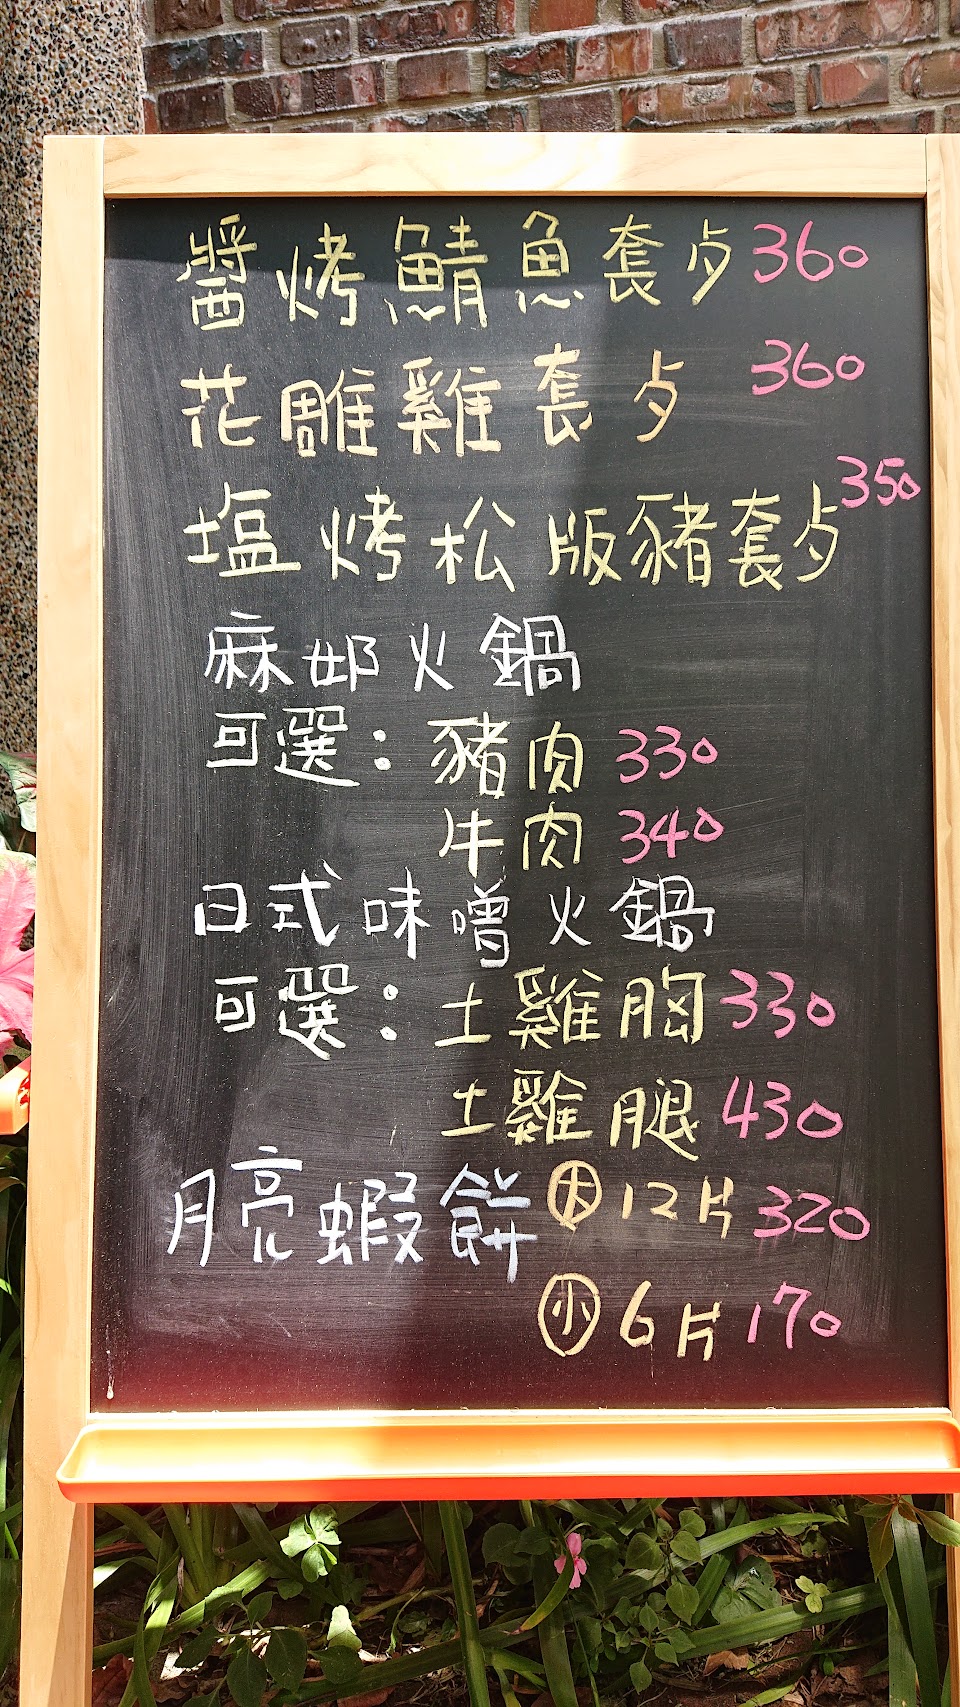 醬烤鯖魚套歺360
花雕雞套歺 360
塩烤松版豬套歺350
麻奶火鍋
可選：豬肉 330
牛肉 340
日式味噌火鍋
可選：土雞胸330
土雞腿430
月亮蝦餅 大 12片 320
小 6片 170